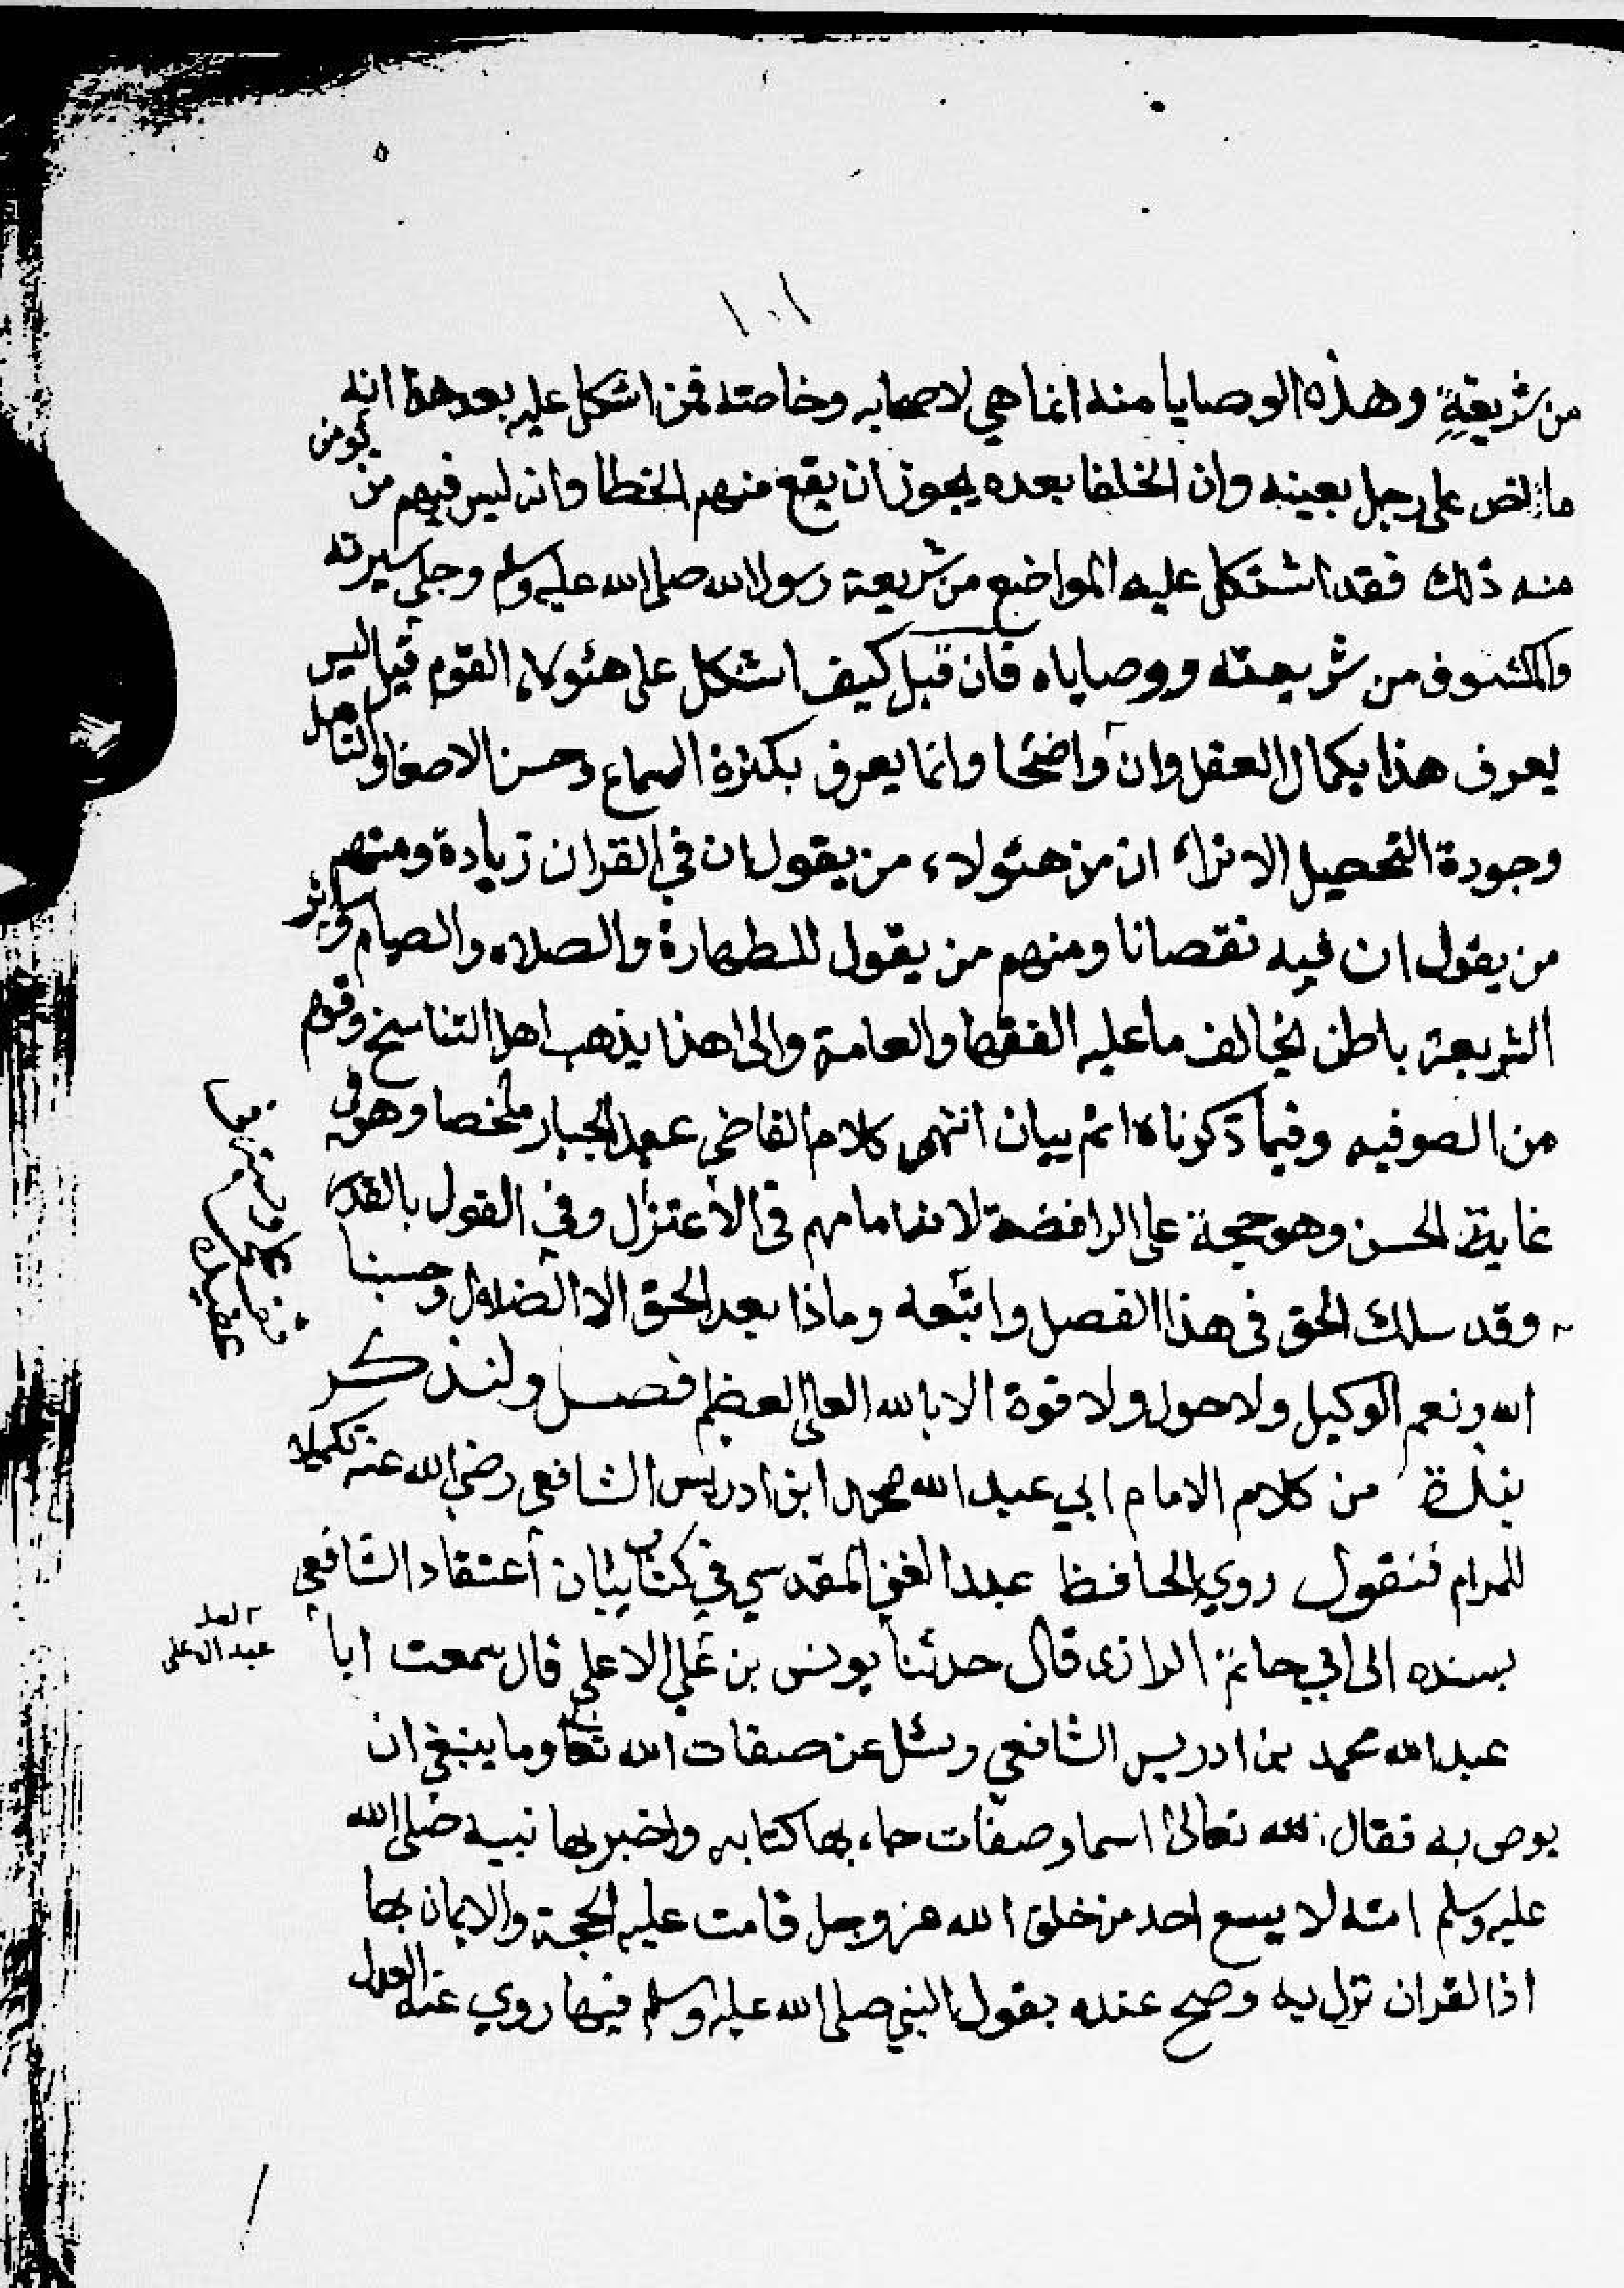 ١٠١
من شريعةٍ وهذه الوصايا منه انما هي لاصحابه وخاصته فمن اشكل عليه بعد هذا انه
ما نص على رجل بعينه وان الخلفا بعده يجوز ان يقع منهم الخطا وانه ليس فيهم من يؤمن
منه ذلك فقد اشتكل عليه المواضع من شريعة رسول الله صلى الله عليه وسلم وجلي سيرته
والمكشوف من شريعته ووصاياه فان قيل كيف اشكل على هئولاء القوم قيل ليس
يعرف هذا بكمال العقل وان واضحا وانما يعرف بكثرة السماع وحسن الاصغا والتامل
وجودة التحصيل الا تراء ان من هئولاء من يقول ان في القران زيادة ومنهم
من يقول ان فيه نقصانا ومنهم من يقول للطهارة والصلاه والصيام وسائر
الشريعة باطن يخالف ما عليه الفقها والعامة والى هذا يذهب اهل التناسخ وقوم
من الصوفيه وفيما ذكرناه اتم بيان انتهى كلام القاضي عبد الجبار ملخصا وهو في
غاية الحسن وهو حجة على الرافضة لانه امامهم في الاعتزل وفي القول بالقدر
وقد سلك الحق في هذا الفصل واتبعه وماذا بعد الحق الا الضلال وحسبنا
الله ونعم الوكيل ولا حول ولا قوة الا بالله العلي العظيم فصل ولنذكر
نبذة من كلام الامام ابي عبد الله محمد ابن ادريس الشافعي رضي الله عنه تكميلا
للمرام فنقول روي الحافظ عبد الغني المقدسي في كتاب بيان أعتقاد الشافعي
بسنده الى ابي حاتم الرازى قال حدثنا يونس بن علي الاعلي قال سمعت ابا
لعله
عبد الاعلى
عبد الله محمد بن ادريس الشافعي وسئل عن صفات الله تعا وما ينبغي ان
يوص به فقال لله تعالى اسما وصفات جاء بها كتابه واخبر بها نبيه صلى الله
عليه وسلم امته لا يسع احد من خلق الله عز وجل قامت عليه الحجة والايمان بها
اذ القران نزل به وصح عنده بقول النبي صلى الله عليه وسلم فيها روي عنه العدل